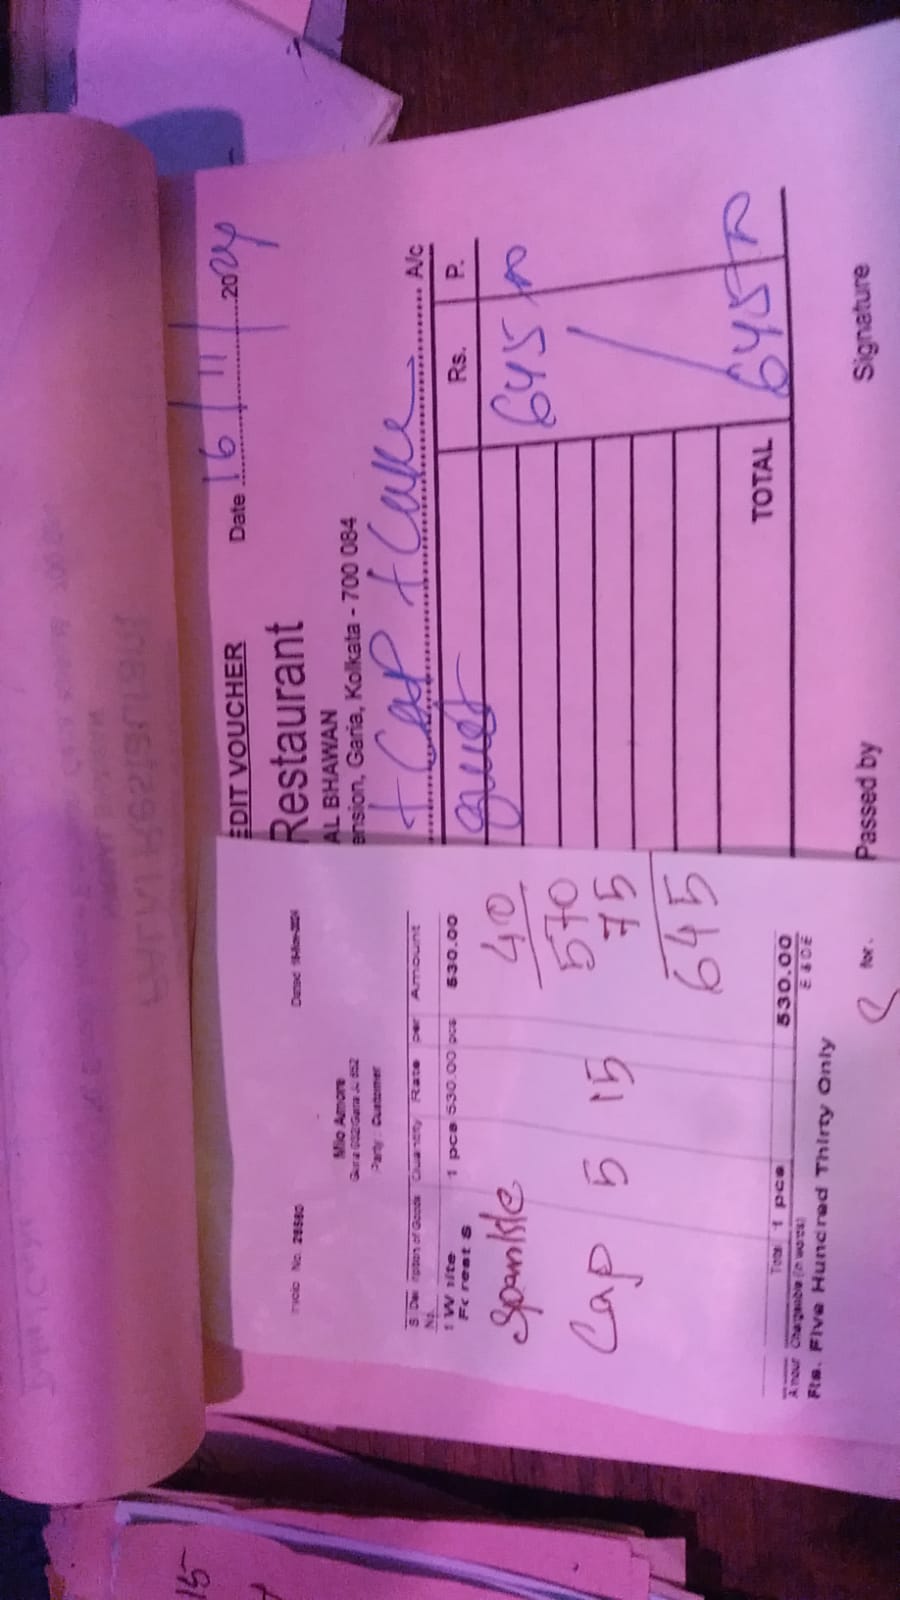 EDIT VOUCHER
Date 16/11/2024
Restaurant
AL BHAWAN
ension, Garia, Kolkata - 700 084
+ Cap + Cake A/c
Rs. P.
Guest 645
TOTAL 645
Passed by Signature
No. 28580
Mio Amore
Party : Customer
Description of Goods Quantity Rate per Amount
No.
1 White 1 pcs 530.00 pcs 530.00
Forest S
Sparkle 40
570
Cap 5 15 75
645
Total 1 pcs 530.00
Amount Chargeable (in words) E & O E
Rs. Five Hundred Thirty Only
for.
15